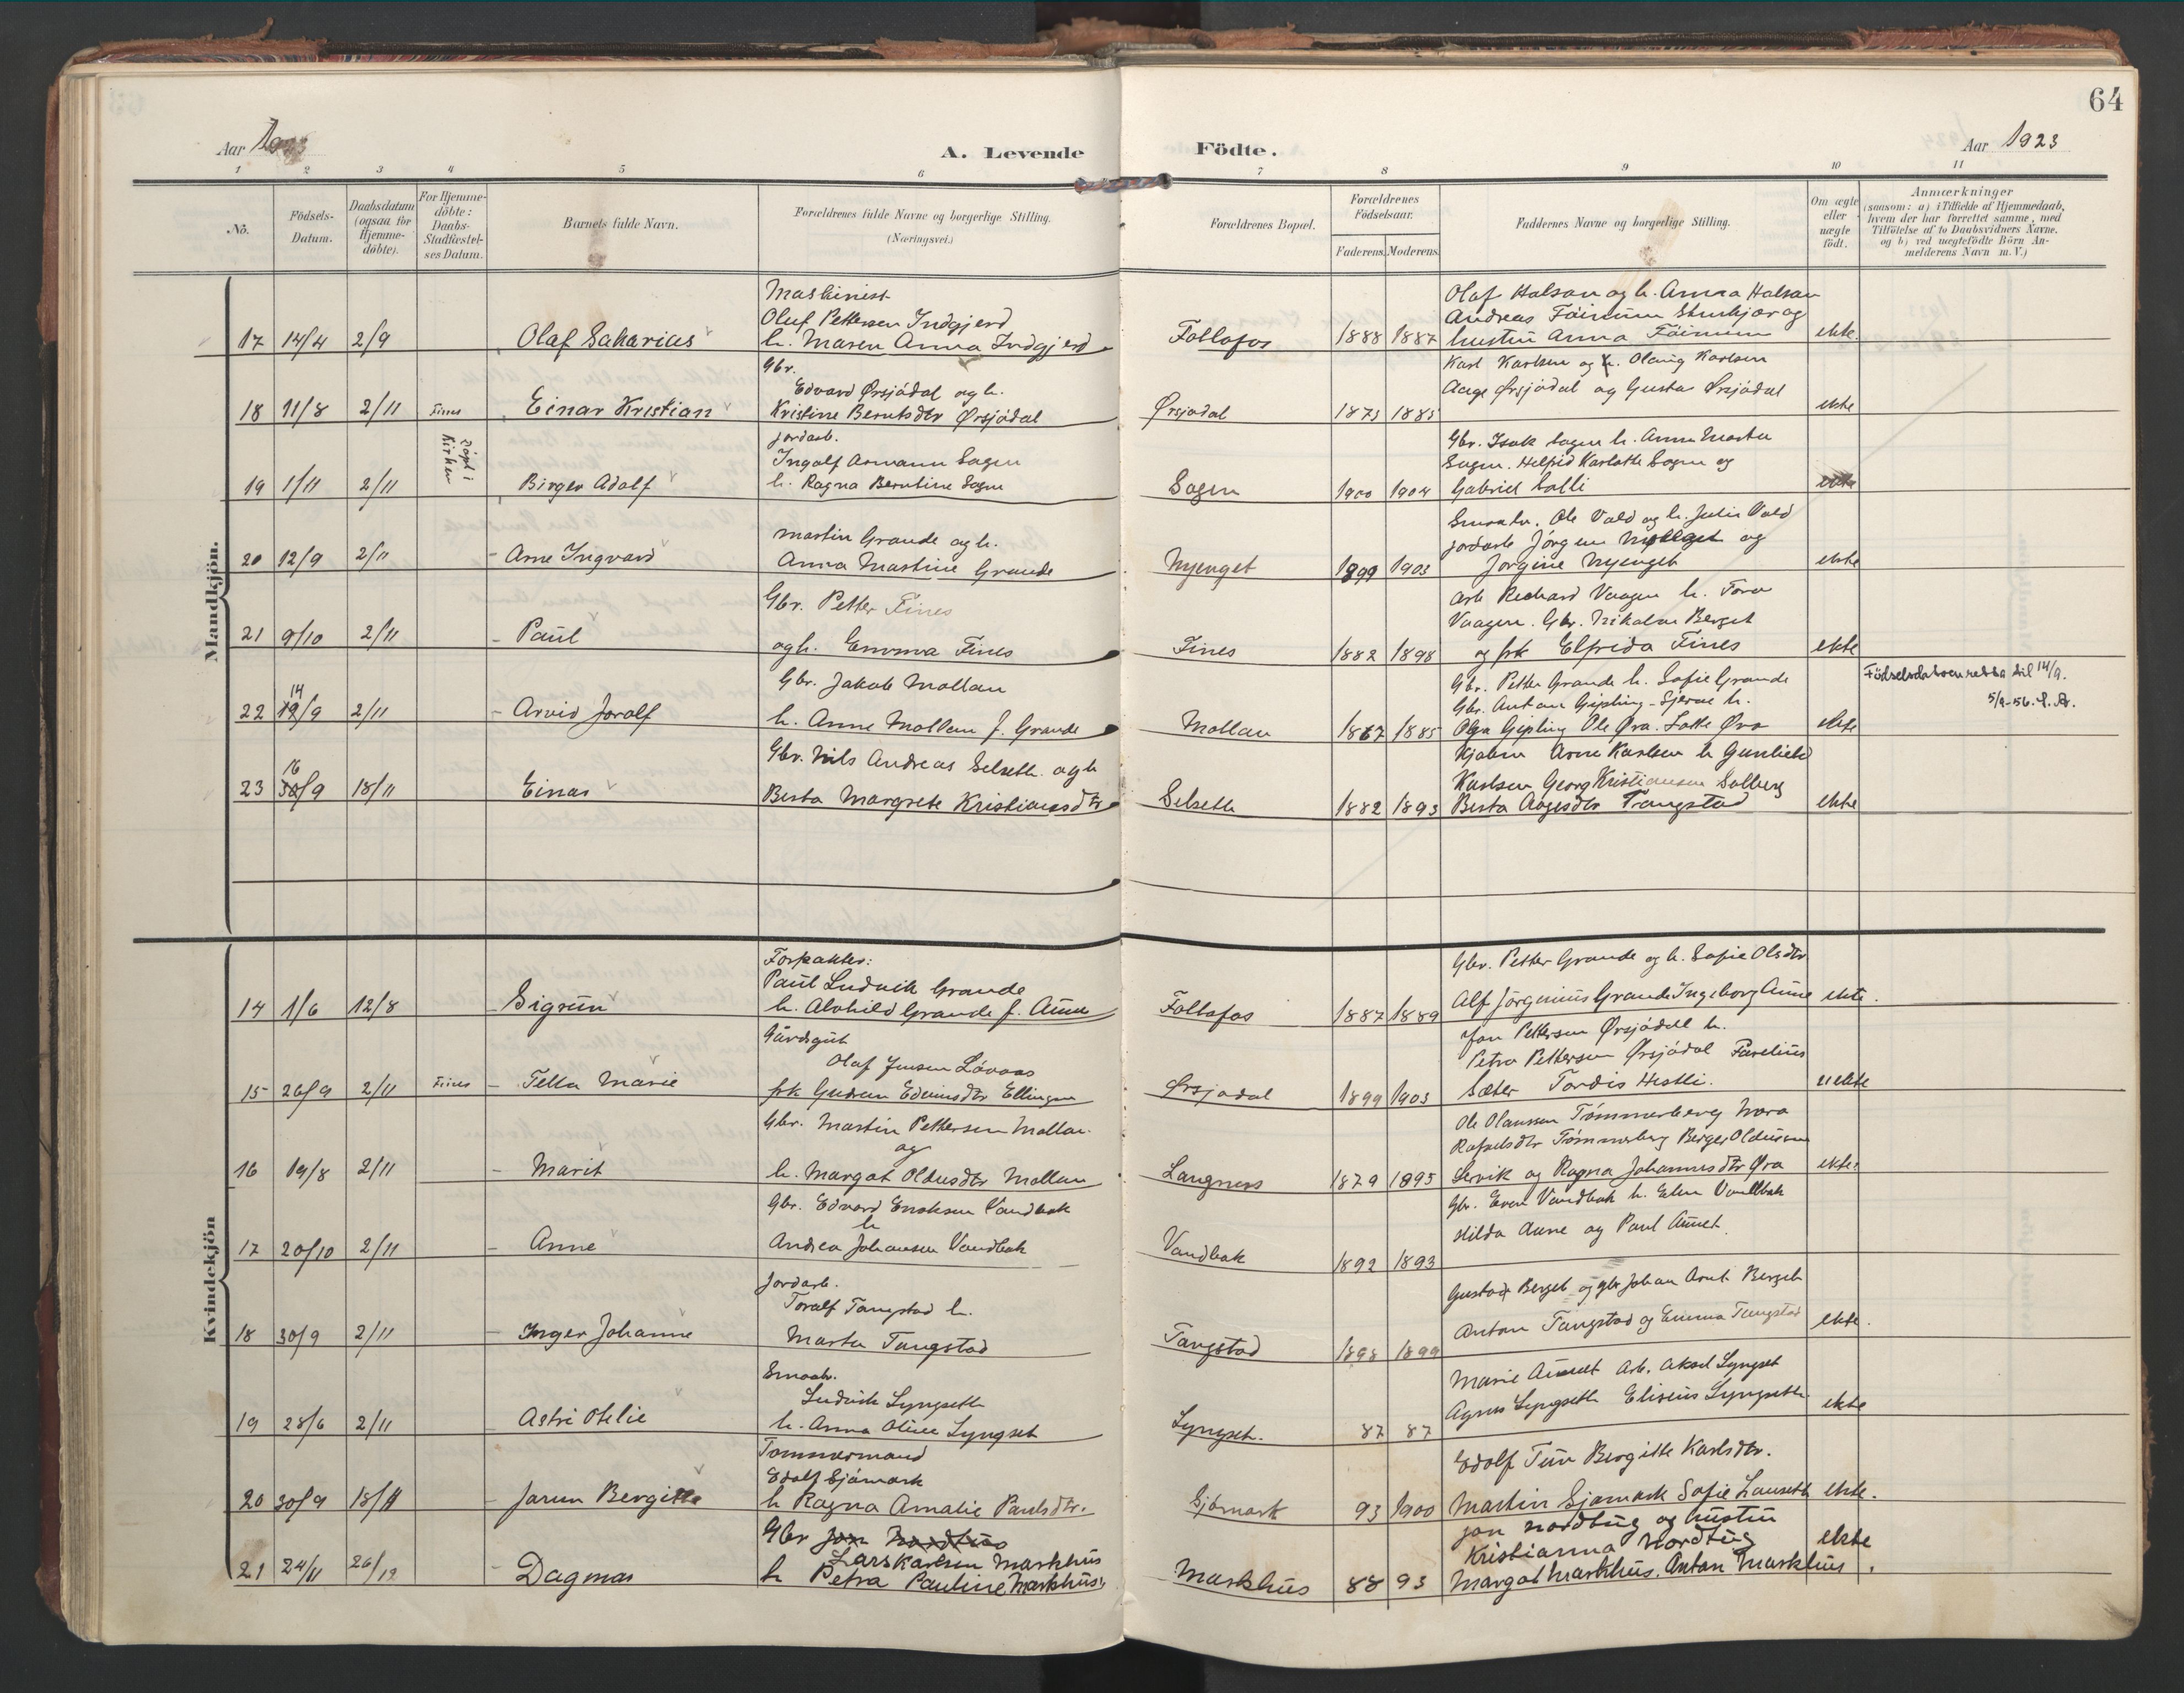 64
Aar 1923
A. Levende
Födte.
Aar 1923
1 2 3 4 5 6 7 8 9 10 11
No.
Födsels-
Datum.
Daabsdatum
(ogsaa for
Hjemme-
döbte).
For Hjemme-
döbte:
Daabs-
Stadfæstel-
ses Datum.
Barnets fulde Navn.
Forældrenes fulde Navne og borgerlige Stilling.
(Næringsvei.)
Forældrenes Bopæl.
Forældrenes
Födselsaar.
Faderens. Moderens.
Faddernes Navne og borgerlige Stilling.
Om ægte
eller
uægte
födt.
Anmærkninger
(saasom: a) i Tilfælde af Hjemmedaab,
hvem der har forrettet samme, med
Tilföielse af to Daabsvidners Navne.
og b) ved uægtefödte Börn An-
melderens Navn m. V.)
Mandkjön.
17 14/4 2/9 Olaf Sakarias
Maskinist
Oluf Pettersen Indgjerd
h. Maren Anna Indgjerd
Follafos 1888 1887
Olaf Halsan og h. Anna Halsan
Andreas
hustru Anna
ekte.
18 11/8 2/11 Fines Einar Kristian
Gbr.
Edvard Ørsjödal og h.
Kristine Berntsdtr Ørsjödal
Ørsjødal 1873 1883
Karl Karlsen og h. Olaug Karlsen
Aage Ørsjödal og Gusta Ørsjödal
ekte
19 1/11 2/11 Döpt i
Kirken
Birger Adolf
jordarb.
Ingolf Asmann Sagen
h. Ragna Berntine Sagen
Sagen 1900 1904
Gbr. Isak Sagen h. Anna Marta
Sagen. Helfrid Karlotte Sagen og
Gabriel Salli
20 12/9 2/11 Arne Ingvard
Martin Grande og h.
Anna Martine Grande
Nyenget 1899 1903
Smaabr. Ole Vold og h. Julie Vold
jordarb Jörgen Nyenget og
Jørgine Nyenget
ekte
21 9/10 2/11 Paul
Gbr. Petter Fines
og h. Emma Fines
Fines 1882 1898
Arb Richard Vaagen h. Tora
Vaagen. Gbr. Nikolai Berget
og frk Elfrida Fines
ekte
22 14 12/9 2/11 Arvid Joralf
Gbr. Jakob Mollan
h. Anne Mollan f. Grande
Mollan 1867 1885
Gbr. Petter Grande h. Sofie Grande
Gbr. Anton Gipling - Gjerne h.
Olga Gipling Ole Øra. Lotte Øra
ekte
Födselsdatoen retta til 14/9.
5/9-56.
23 16 30/9 18/11 Einar
Gbr. Nils Andreas Selseth og h
Berta Margrete Kristiansdtr
Selseth 1882 1893
Arne Karlsen h Gunhild
Karlsen Georg Kristiansen Solberg
Berta Aagesdtr Trangstad
ekte
Kvindekjön
14 1/6 12/8 Sigrun
Forpakter:
Paul Ludvik Grande
h. Alvhild Grande f. Aune
Follafos 1887 1889
Gbr. Petter Grande og h. Sofie Olsdtr
Alf Jörginius Grande Ingeborg Aune
ekte.
15 26/9 2/11 Fines Tella Marie
Gårdsgut
Olaf Jensen Lövaas
frk Gudrun Edvinsdtr Ellingsen
Ørsjødal 1899 1903
Jon Pettersen Ørsjödal h.
Petra Pettersen Ørsjödal
Sæter Tordis Hestli.
uekte
16 19/8 2/11 Marit
Gbr. Martin Pettersen Mollan
og
h. Margot Oldusdtr Mollan
Langnes 1879 1895
Ole Olaussen Tömmerberg Nora
Rafaelsdtr Tömmerberg Birger Oldussen
Lervik og Ragna Johannesdtr Øra
ekte.
17 20/10 2/11 Anne
Gbr. Edvard Enoksen Vandbak
h
Andrea Johansen Vandbak
Vandbak 1892 1893
Gbr. Even Vandbak h. Elen Vandbak
Hilda Aune og Paul Aunet
18 30/9 2/11 Inger Johanne
Jordarb.
Toralf Tangstad h.
Marta Tangstad
Tangstad 1898 1899
Gustav Berget og gbr Johan Arnt Berget
Anton Tangstad og Emma Tangstad
ekte.
19 28/6 2/11 Astri Otelie
Smaabr.
Ludvik Lyngseth
h. Anna Oline Lyngset
Lyngset. 87 87
Marie Aunet Arb. Aksel Lyngset
Agnes Lyngseth Eliseus Lyngseth
ekte
20 30/9 18/11 Jarun Bergitte
Tømmermand
Edolf Sjömark
h Ragna Amalie Paulsdtr.
Sjömark 93 1900
Edolf Tun Bergitte Karlsdtr.
Martin Sjömark Sofie Lauseth
ekte.
21 24/11 26/12 Dagmar
Gbr Jon Nordtug
Lars Karlsen Markhus
h Petra Pauline Markhus.
Markhus 88 93
Jon Nordtug og hustru
Kristianna Nordtug
Margot Markhus. Anton Markhus
ekte